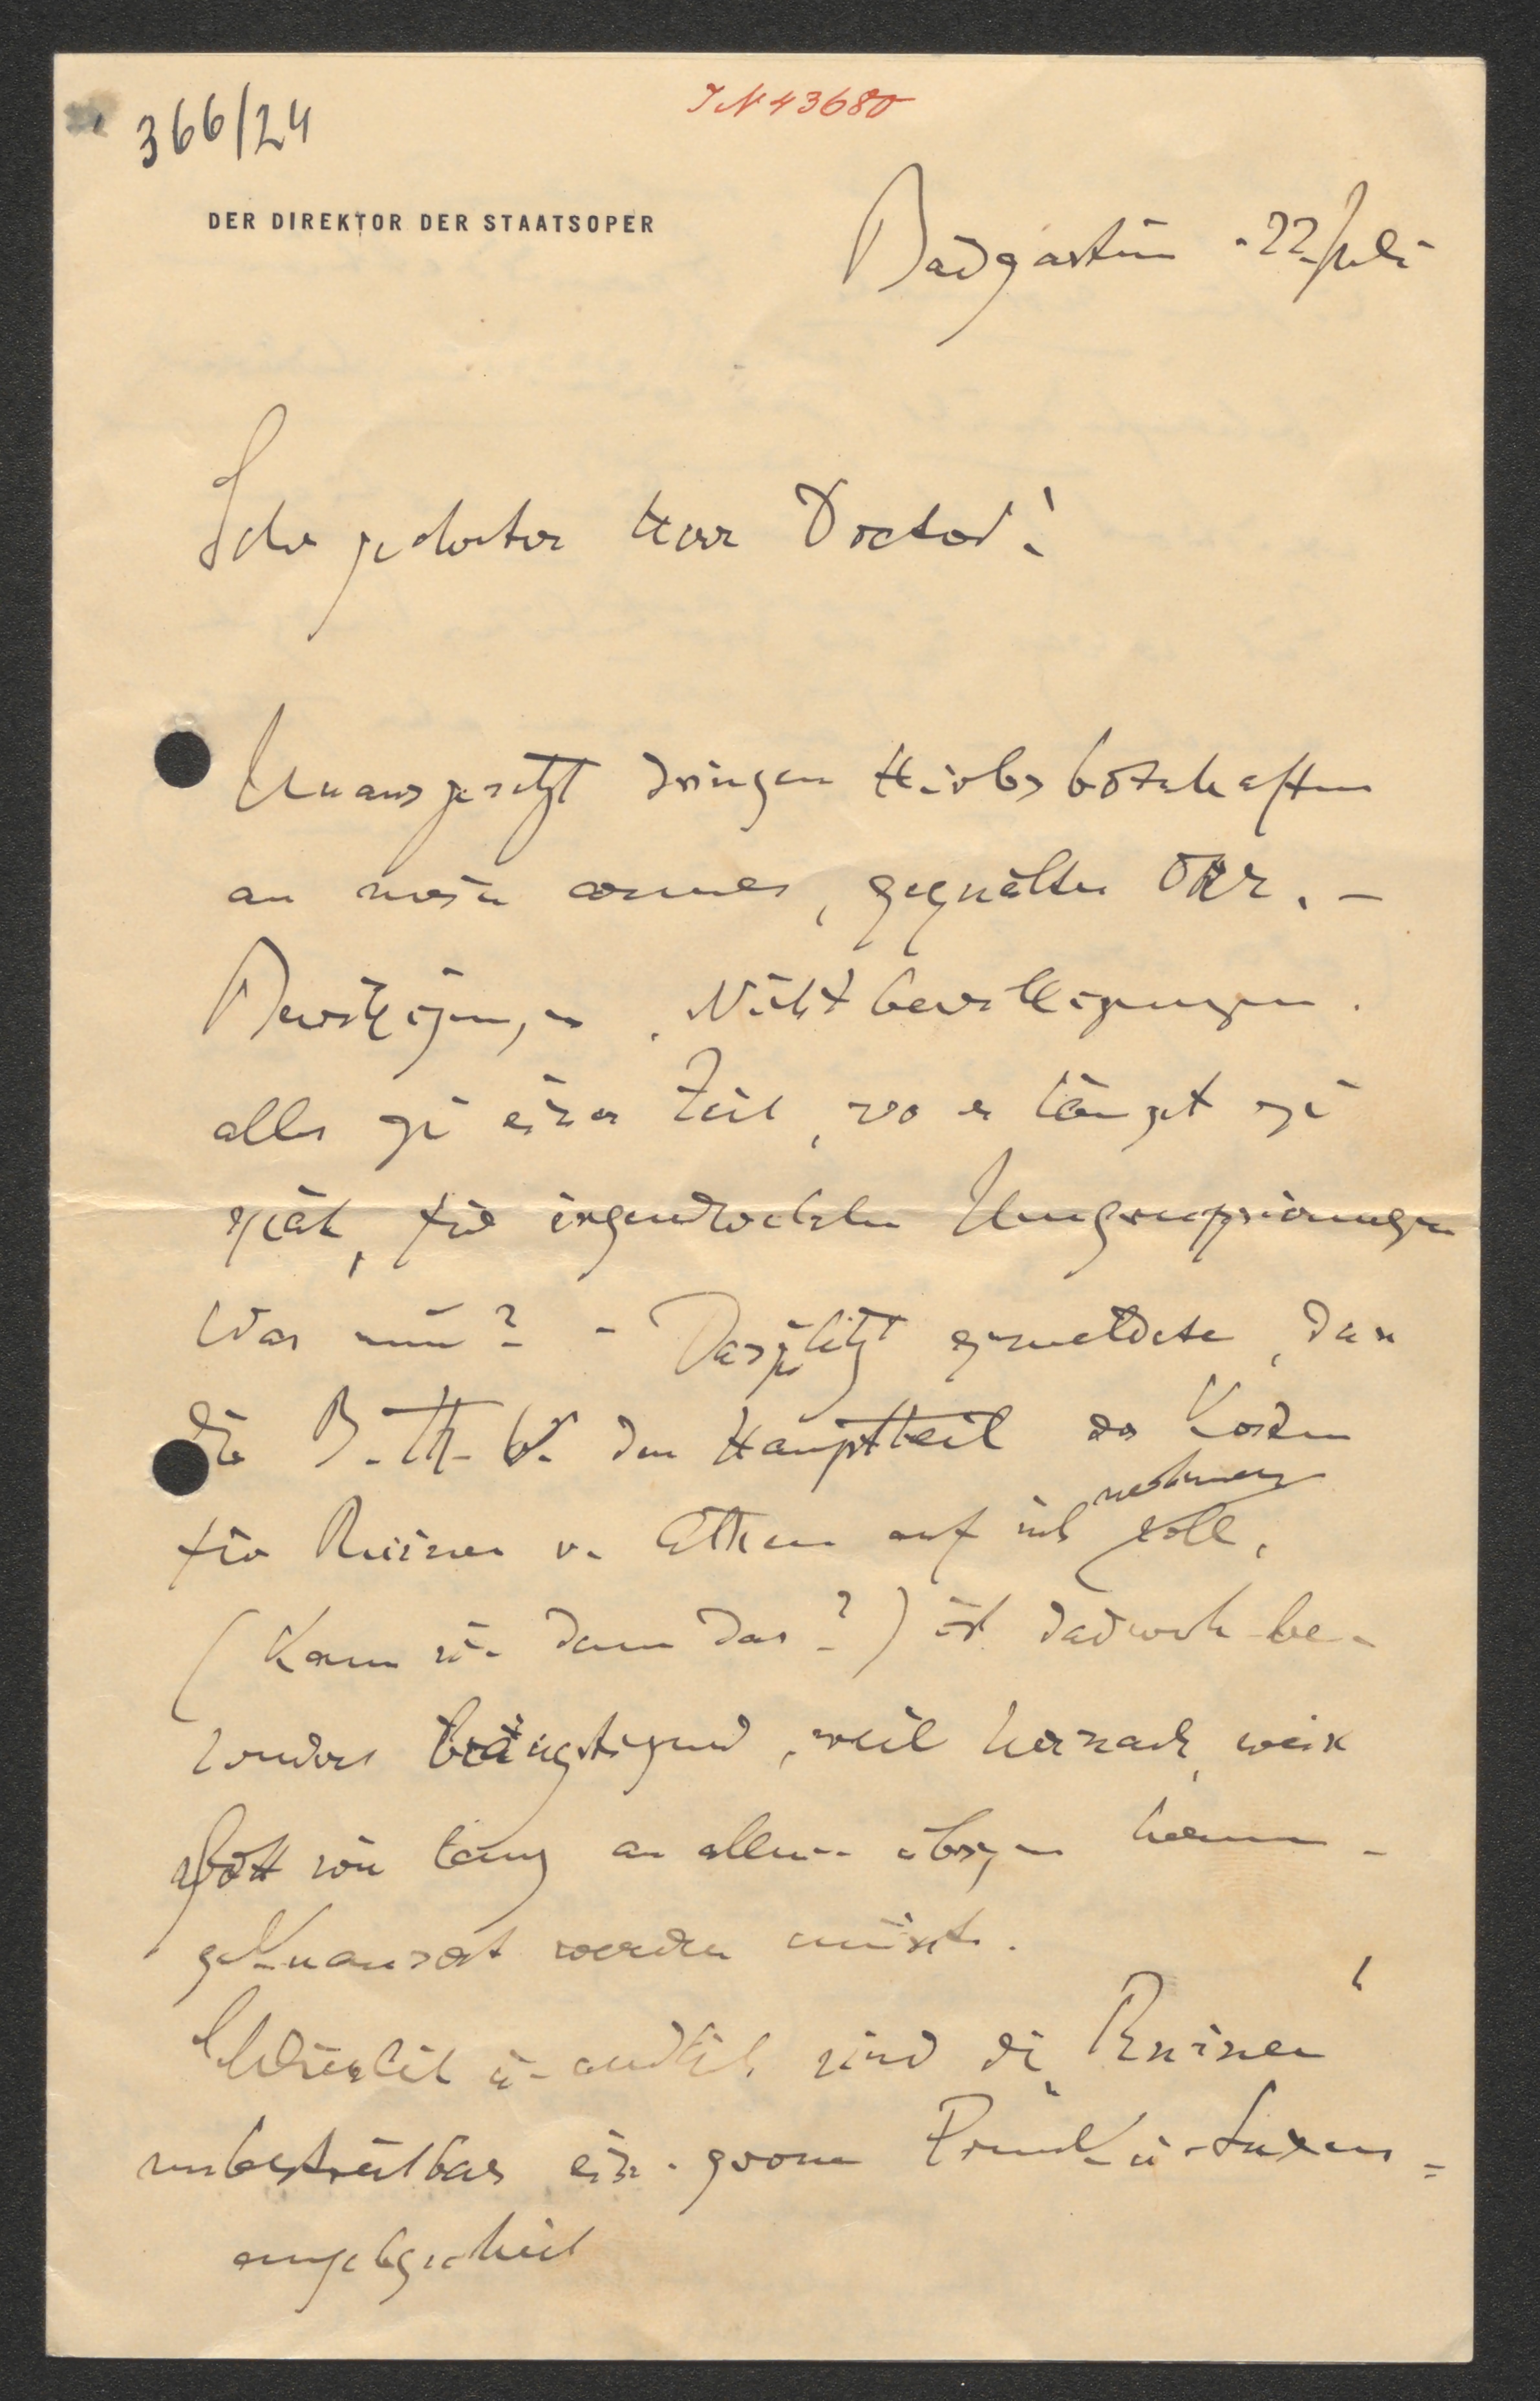 366/24
IN 43680
DER DIREKTOR DER STAATSOPER
Badgastein . 22. Juli
Sehr geehrter Herr Doctor!
Unausgesetzt dringen Hiobsbotschaften
an mein armes, gequältes Ohr. –
Bewilligungen, Nichtbewilligungen.
alles zu einer Zeit, wo es längst zu
spät, für irgendwelche Umgruppierungen
Was nun? – Das jetzt gemeldete, dass
die B. Th. V. den Hauptteil der Kosten
für Ruinen v. Athen auf sich nehmen soll,
(Kann sie denn das?) ist dadurch be-
sonders beängstigend, weil hernach, weiss
Gott wie lang an allem übrigen herum-
geknausert werden müsste.
Schliesslich u. endlich sind die „Ruinen“
unbestreitbar eine grosse Prunk u. Luxus=
angelegenheit